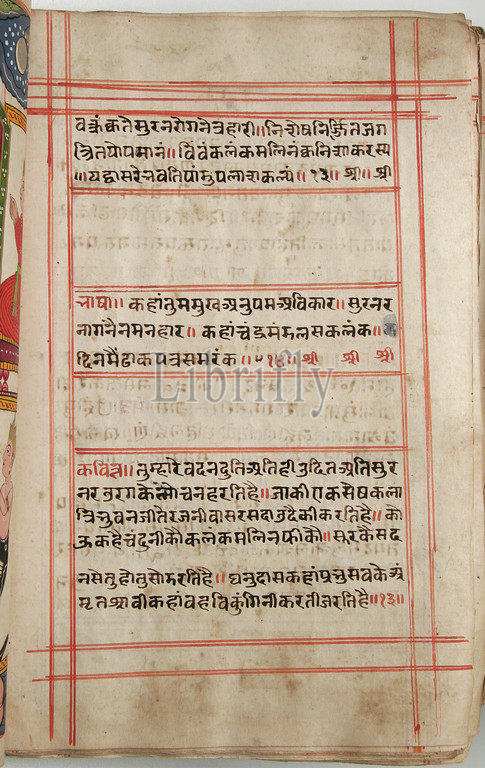 वक्त्रं क्व ते सुरनरोरगनेत्रहारी॥ निःशेषनिर्जितजग
त्रितयोपमानं॥ बिंबं कलंकमलिनं क्व निशाकरस्य
॥ यद्वासरे भवति पांसुपलाशकल्पं॥१३॥ श्री॥ श्री
भाषा॥ कहां तुम मुख अनुपम अविकार॥ सुर नर
नाग नैन मनहार॥ कहां चंद्र मंडल सकलंक॥
दिन मै ढाक पत्र सम रंक॥ श्री श्री श्री
कवित्त॥ तुम्हारे वदन दुति अति ही उदित अति सुर
नर उरग के लोचन हरति है॥ जाकी एक सेष कला
त्रिभुवन जीते रजनी वासर सदा उदै की करति है॥ को
ऊ कहै चंदु नीको कलंक मलिन फीको॥ सुर कै सद
न सेतु होतु सो दरति है॥ धनुदास कहां प्रभु सब के अं
मृत श्रावी कहां वह
Librifly